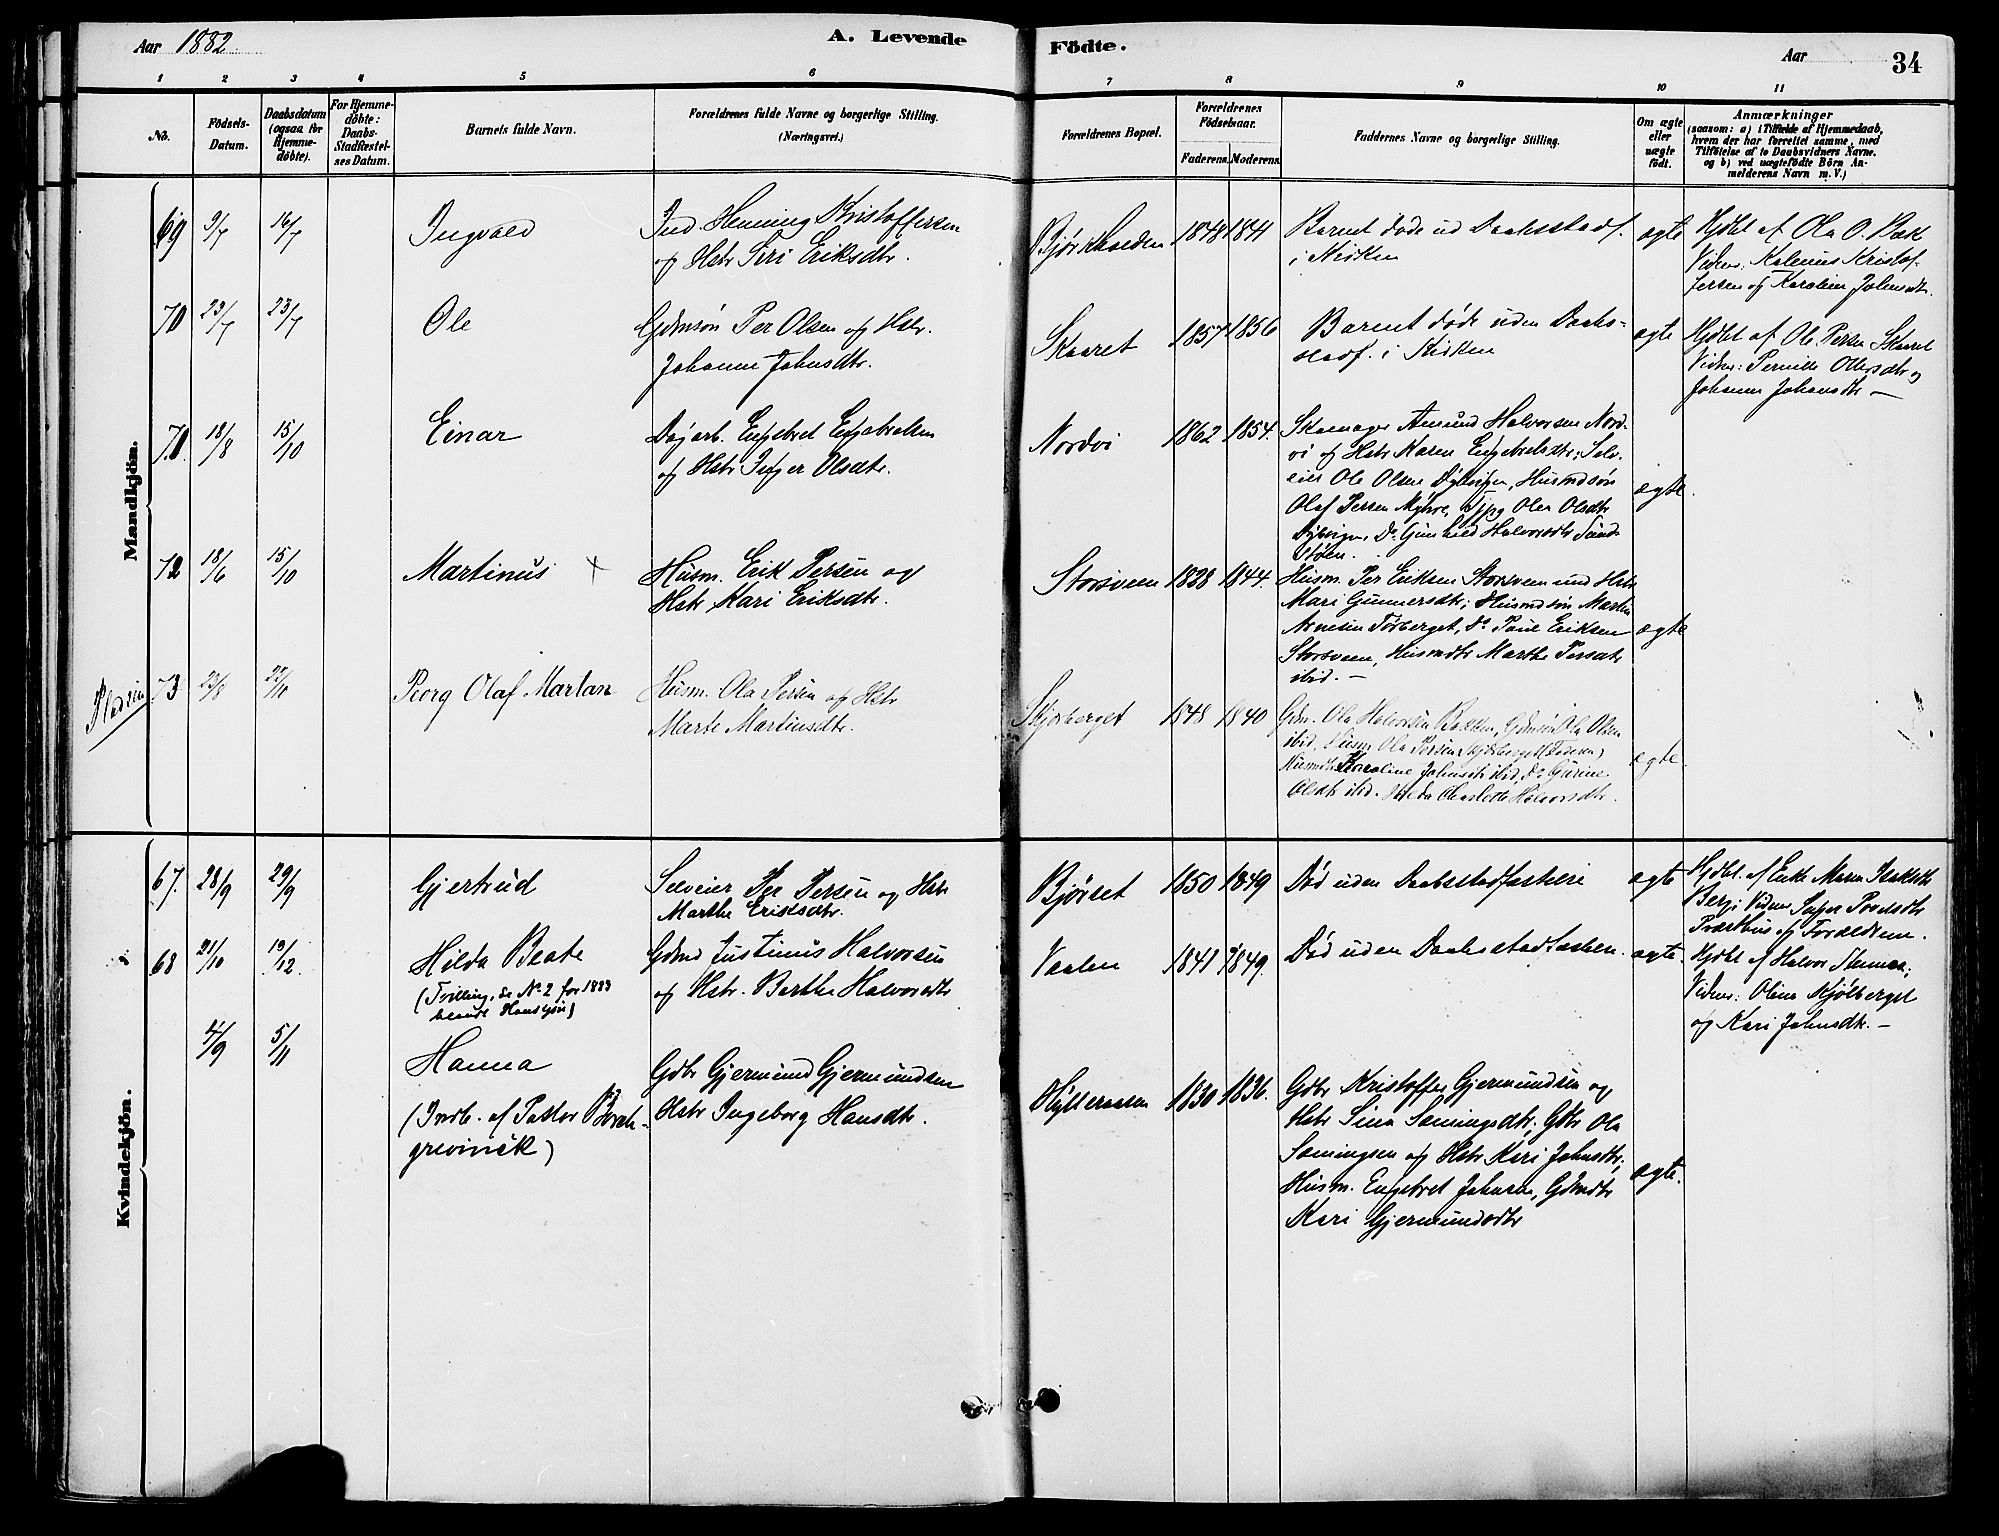 Aar 1882.
A. Levende Födte.
Aar
34
1 2 3 4 5 6 7 8 9 10 11
No.
Födsels-
Datum.
Daabsdatum
(ogsaa for
Hjemme-
døbte).
For Hjemme-
döbte:
Daabs-
Stadfæstel-
ses Datum.
Barnets fulde Navn.
Forældrenes fulde Navne og borgerlige Stilling.
(Næringsvei.)
Forældrenes Bopæl.
Forældrenes
Födselsaar.
Faderens. Moderens.
Faddernes Navne og borgerlige Stilling.
Om ægte
eller
uægte
födt.
Anmærkninger
(saasom: a) i Tilfælde af Hjemmedaab,
hvem der har forrettet samme, med
Tilföielse af to Daabsvidners Navne.
og b) ved uægtefödte Börn An-
melderens Navn m. V.)
Mandkjön.
69 9/7 16/7
Ingvald
Ind. Henning Kristoffersen
og Hstr Siri Eriksdtr.
1848 1841
Barnet døde ud Daabsstadf.
i Kirken
ægte
Hjdbt af Ola O. Bæk
Vidner: Kalenus Kristof-
fersen og Karoline Johnsdtr.
70 23/7 23/7
Ole
Gdmsøn Per Olsen og Hstr.
Johanne Johnsdtr.
Skaaret
1857 1856
Barnet døde uden Daabs-
stadf. i Kirken
ægte
Hjdbt af Ole Persen Skaaret
Vidner: Pernille Olsdtr og
Johanne Johansdtr —
18/8 15/10
Einar
Dagarb. Engebret Engebretsen
og Hstr Inger Olsdtr.
Nordvi
1862 1854.
Skomager Amund Halvorsen Nord-
vi og Hstr Karen Engebretsdtr; Selv-
eier Ole Olsen Husmdsøn
Olaf Persen Myhre, Olea Olsdtr
Do Gunhild Halvorsdtr
støen.
ægte.
72 18/6 15/10
Martinus ×
Husm. Erik Persen og
Hstr. Kari Eriksdtr.
Storsveen
1828 1844.
Husm. Per Eriksen Storsveen und Hstr
Mari Gunnersdtr; Husmdsøn Martin
Arnesen Torberget, Do Paul Eriksen
Storsveen, Husmdtr Marthe Persdtr
ibid. —
ægte
73 23/8 22/10
Georg Olaf Martan
Husm. Ola Persen og Hstr
Marte Martinusdtr.
1848 1840
Gdm. Ola Halvorsen Bakken, Gdmsøn Ola Olsen
ibid, Husm Ola Persen (Faderen)
Husmdtr Karoline Johnsdtr ibid, Do Gurine
Olsdtr ibid. Hilda Charlotte Halvorsdtr.
ægte.
Kvindekjön.
67. 28/9 29/9
Gjertrud
Selveier Per Persen og Hstr
Marthe Eriksdtr.
Bjørset
1850 1849
Død uden Daabsstadfæstelse
ægte
Hjdbt. af Enke Maren
Berg; Vidner Inger
og Forældrene.
68 21/10 19/12
Hilda Beate
(Tvilling, se No 2 for 1883
blandt Hankjøn)
Gdmd Justinus Halvorsen
og Hstr. Berthe Halvorsdtr
Vaalen
1841 1849.
Død uden Daabsstadfæstelsen.
ægte.
Hjdbt af Halvor
Vidner: Oline Kjølberget
og Kari Johnsdtr. —
4/9 5/11
Hanna
(Indb. af Pastor Borch-
grevinck)
Gdbr Gjermund Gjermundsen
Hstr Ingeborg Hansdtr.
Hylleraasen
1830 1836.
Gdbr Kristoffer Gjermundsen og
Hstr Sina Sæmingsdtr; Gdbr Ola
Sæmingsen og Hstr Kari Johnsdtr;
Husm. Engebret Johnsen, Gdmdtr
Kari Gjermundsdtr
ægte.